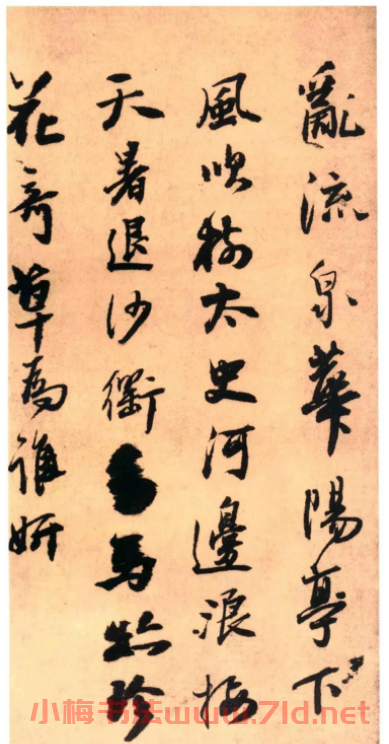 亂流泉華陽亭下
風吹樹太史河邊浪拍
天暑退沙衢馬珍
花奇草為誰妍
小梅书法www.7ld.net